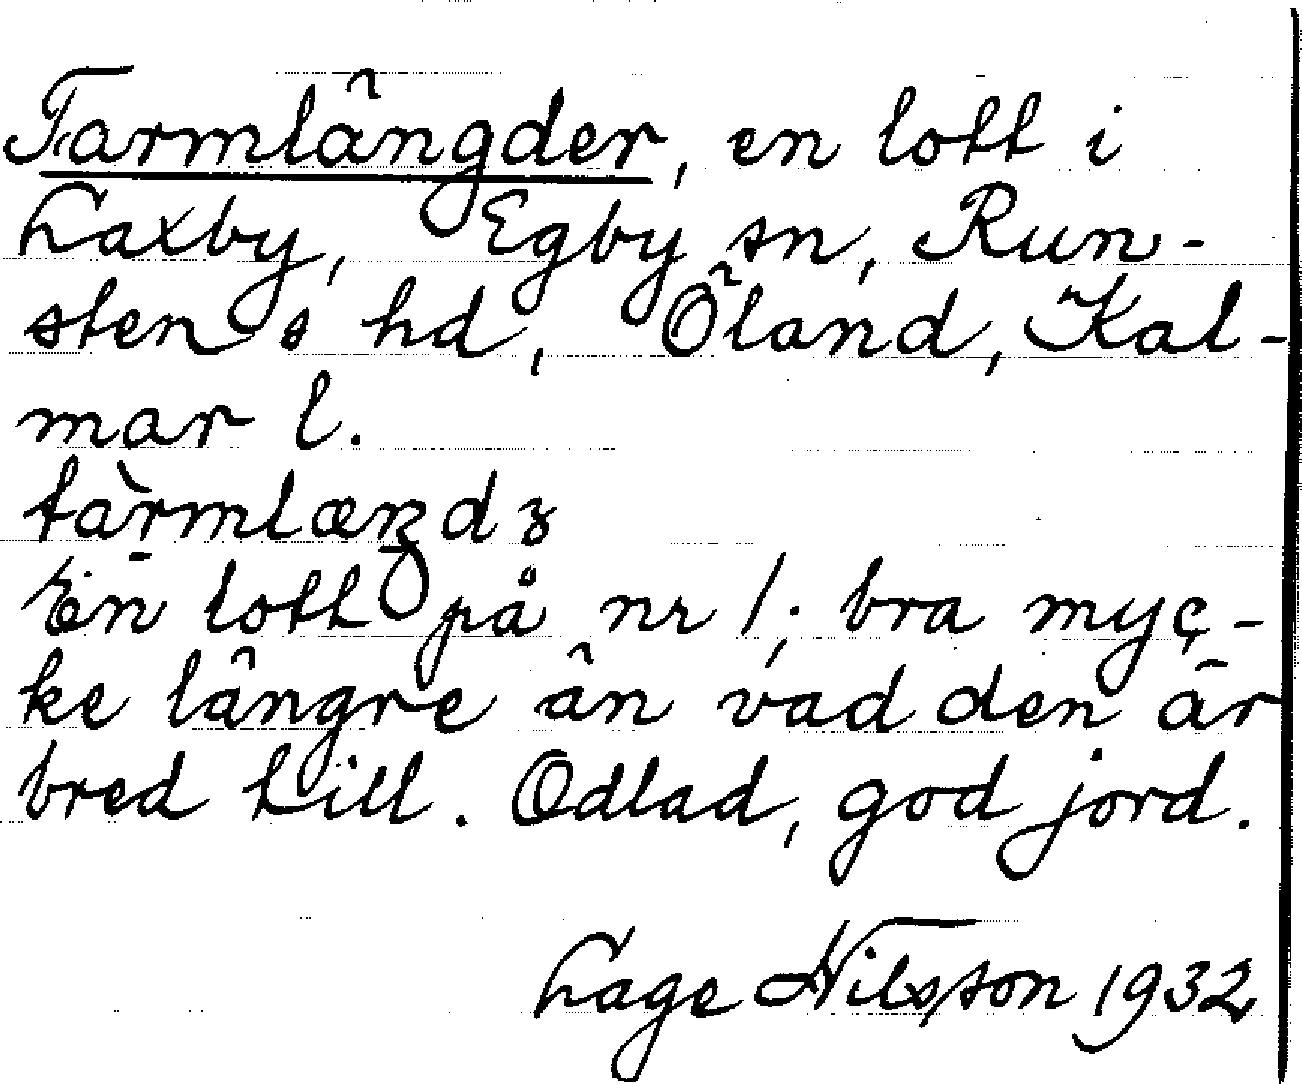 Tarmlängder, en lott i
Laxby, Egby sn, Run-
stens hd, Öland, Kal-
mar l.
En lott på nr 1; bra myc-
ke längre än vad den är
bred till. Odlad, god jord.
Lage Nilsson 1932